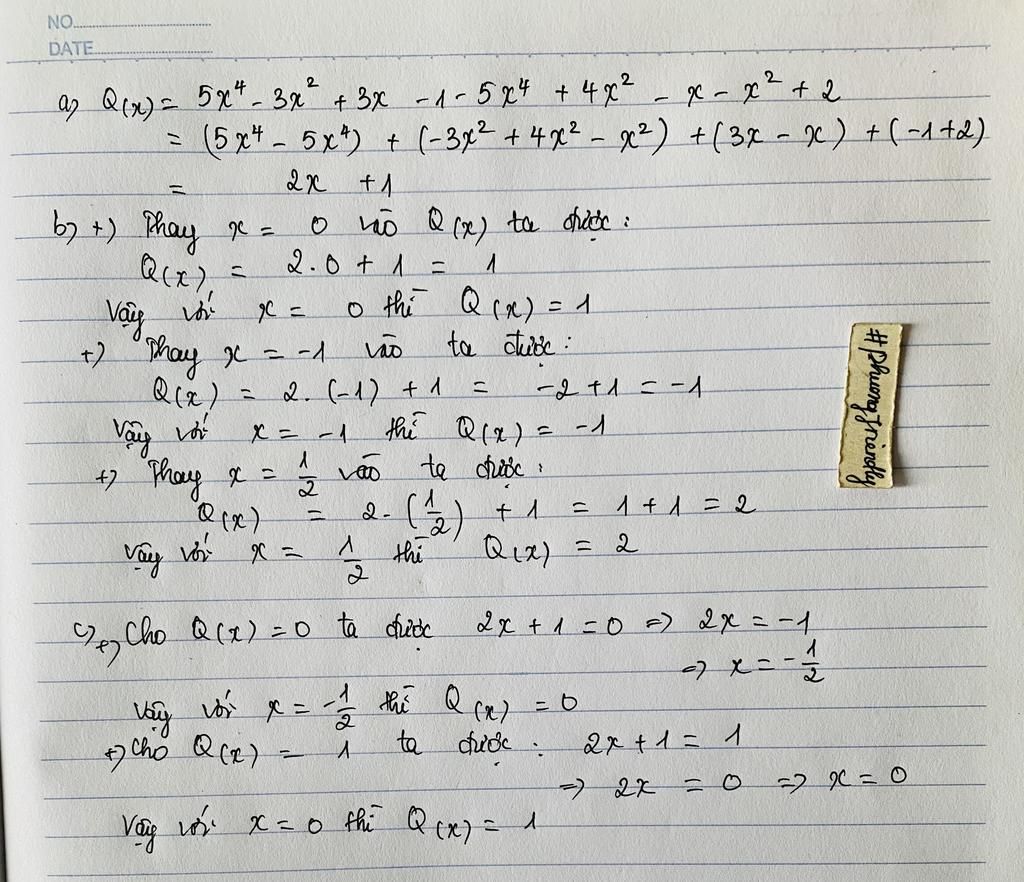 NO.
DATE
a) Q(x) = 5x⁴ - 3x² + 3x - 1 - 5x⁴ + 4x² - x - x² + 2
= (5x⁴ - 5x⁴) + (-3x² + 4x² - x²) + (3x - x) + (-1+2)
= 2x + 1
b) +) Thay x = 0 vào Q(x) ta được :
Q(x) = 2.0 + 1 = 1
Vậy với x = 0 thì Q(x) = 1
+) Thay x = -1 vào ta được :
Q(x) = 2. (-1) + 1 = -2 + 1 = -1
Vậy với x = -1 thì Q(x) = -1
+) Thay x = 1/2 vào ta được :
Q(x) = 2. (1/2) + 1 = 1 + 1 = 2
Vậy với x = 1/2 thì Q(x) = 2
c) +) Cho Q(x) = 0 ta được 2x + 1 = 0 => 2x = -1
=> x = -1/2
Vậy với x = -1/2 thì Q(x) = 0
+) Cho Q(x) = 1 ta được : 2x + 1 = 1
=> 2x = 0 => x = 0
Vậy với x = 0 thì Q(x) = 1
#phuongfriendly